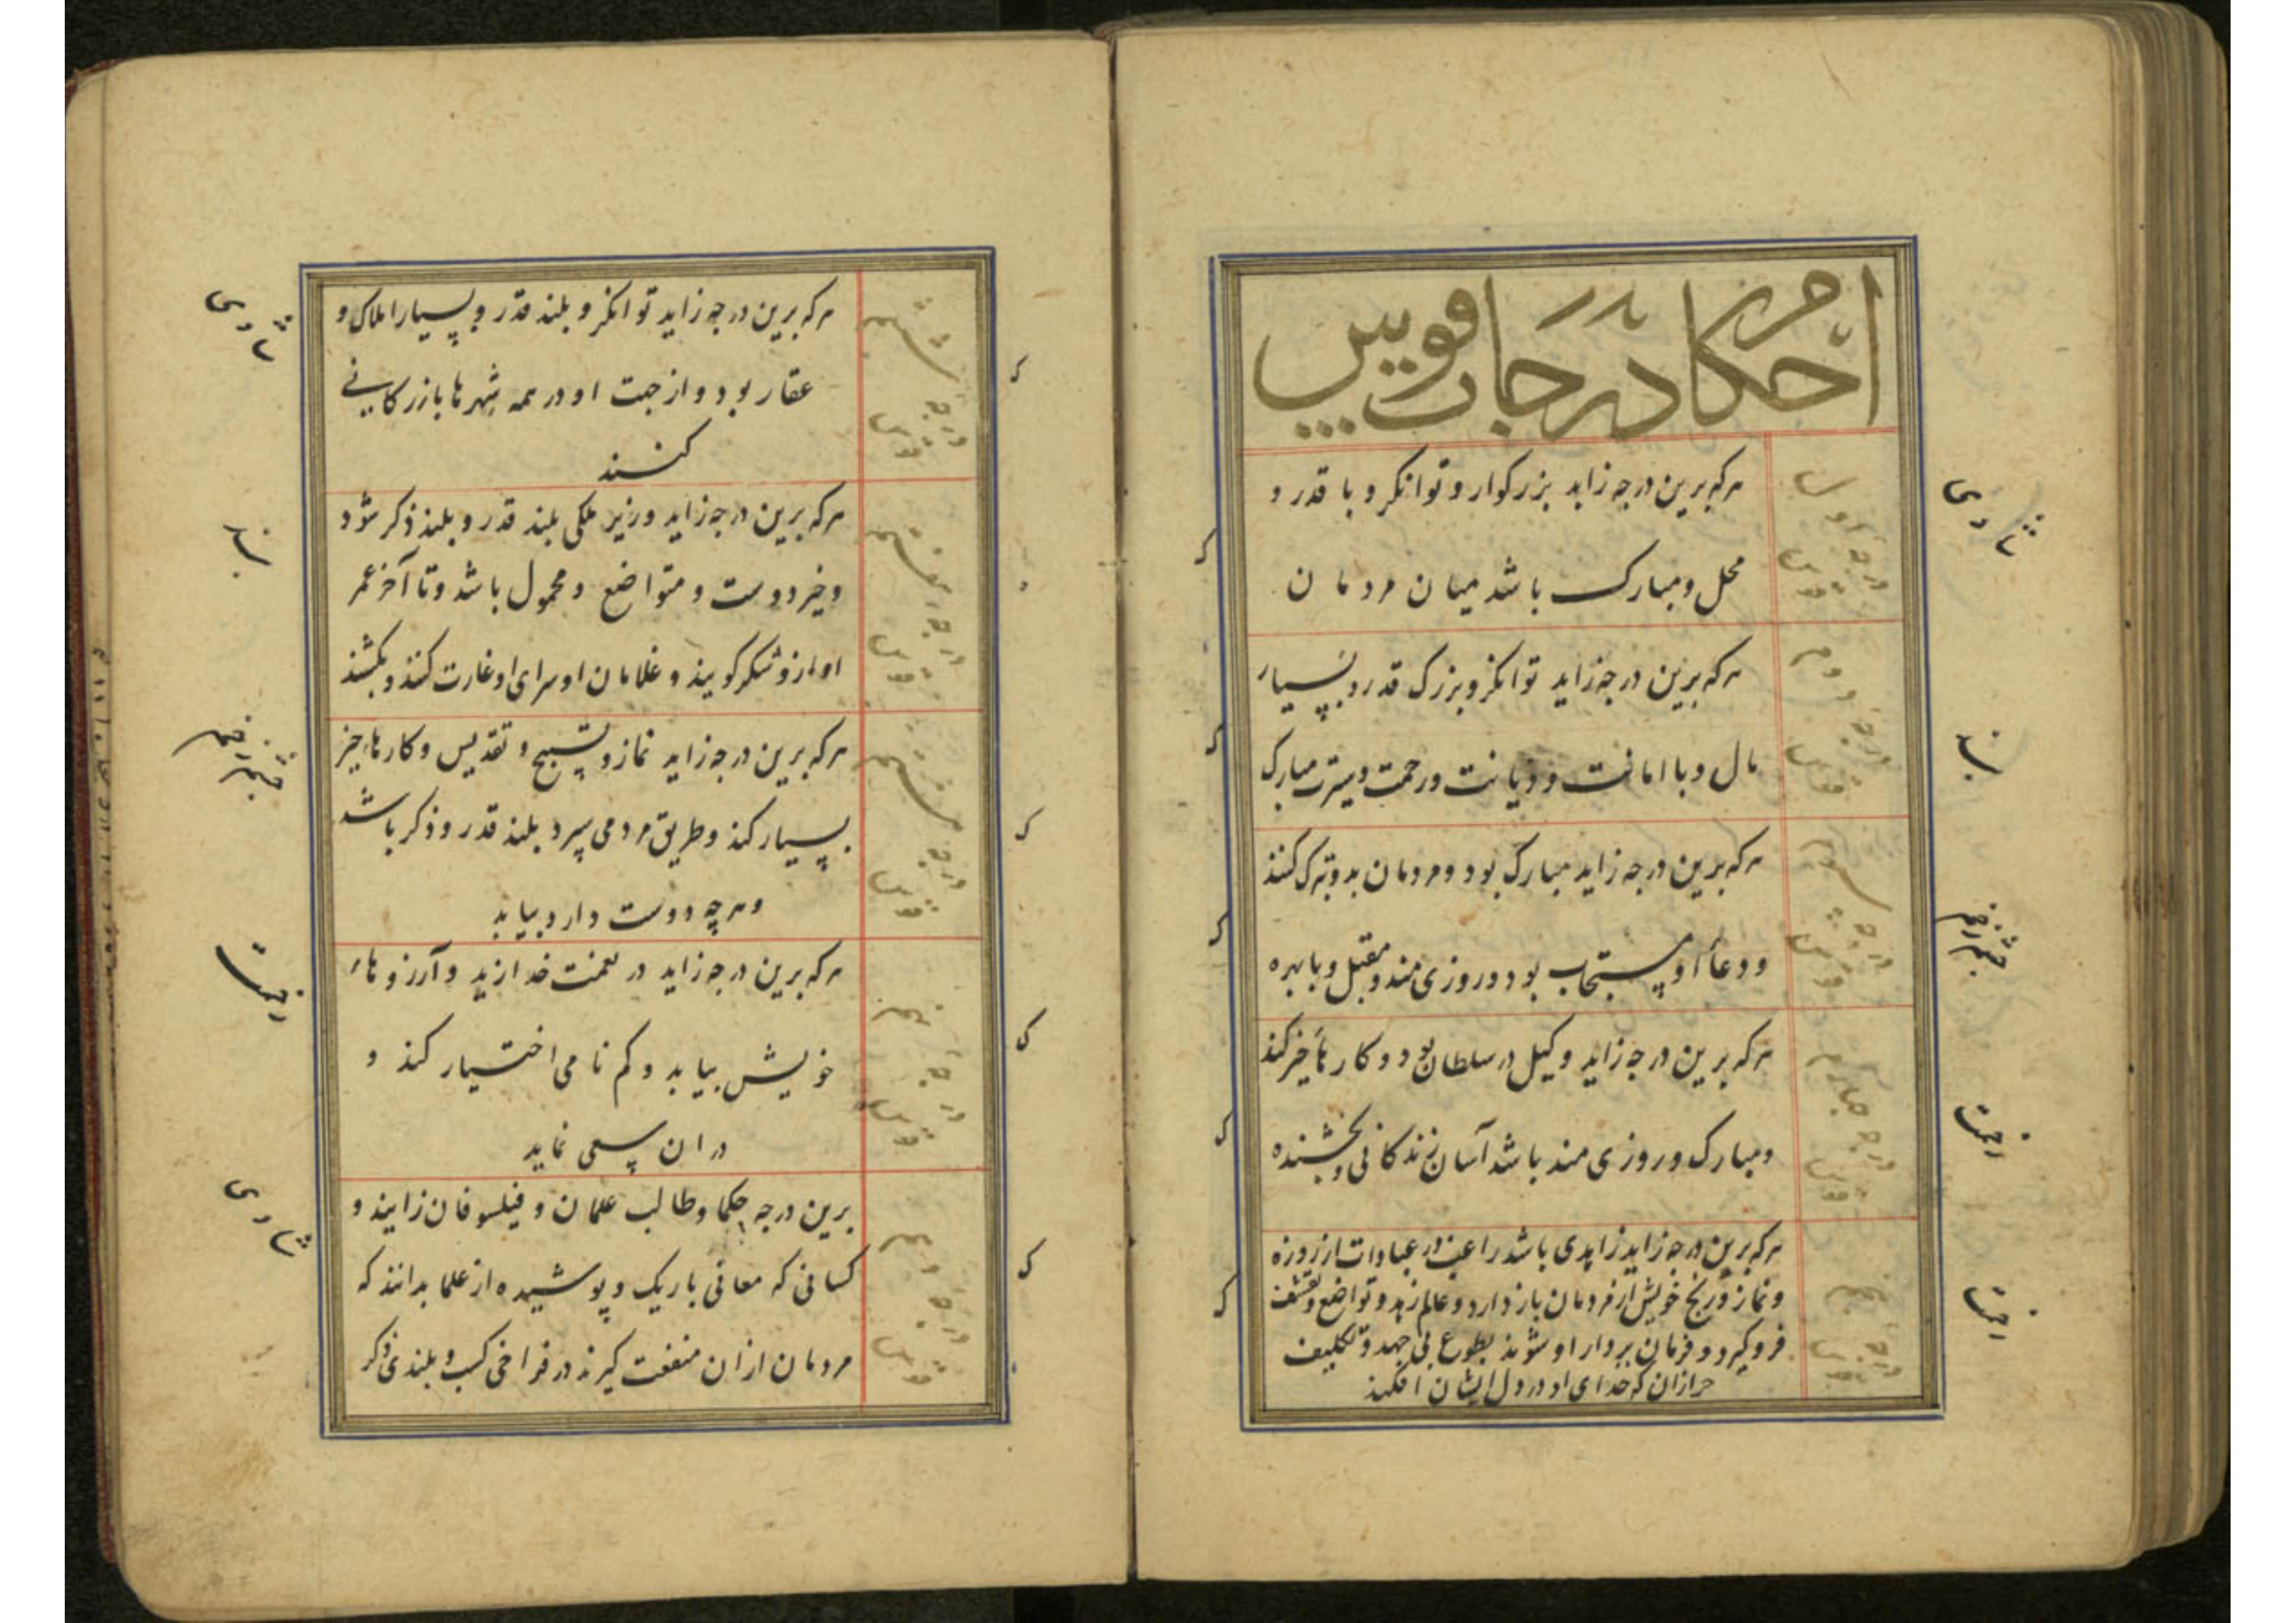 احکام درجات قوس
درجه اول
قوس
هرکه برین درجه زاید بزرکوار و توانکر و با قدر و
محل و مبارک باشد میان مردمان
درجه دوم
قوس
هرکه برین درجه زاید توانکر و بزرک قدر و بسیار
مال و با امانت و دیانت و رحمت و سیرت مبارک
درجه سوم
قوس
هرکه برین درجه زاید مبارک بود و مردمان بدو تبرک کنند
و دعاء او مستجاب بود و روزی مند و مقبل و با بهره
درجه چهارم
قوس
هرکه برین درجه زاید وکیل در سلطان بود و کارهاء خیر کند
و مبارک و روزی مند باشد آسان زندکانی و بخشنده
درجه پنجم
قوس
هرکه برین درجه زاید زاهدی باشد راغب در عبادات از روزه
و نماز و رنج خویش از مردمان باز دارد و عالم زهد و تواضع و تقشف
فرو کیرد و فرمان بردار او شوند بطوع بی جهد و تکلیف
جز از آن که خدای او در دل ایشان افکند
درجه ششم
قوس
هرکه برین درجه زاید توانکر و بلند قدر و بسیار املاک و
عقار بود و از جهت او در همه شهرها بازرکانی
کنند
درجه هفتم
قوس
هرکه برین درجه زاید وزیر ملکی بلند قدر و بلند ذکر شود
و خیر دوست و متواضع و محمول باشد و تا آخر عمر
او ازو شکر کویند و غلامان او سرای او غارت کنند و بکشند
درجه هشتم
قوس
هرکه برین درجه زاید نماز و تسبیح و تقدیس و کارهاء خیر
بسیار کند و طریق مردمی سپرد بلند قدر و ذکر باشد
و هر چه دوست دارد بیابد
درجه نهم
قوس
هرکه برین درجه زاید در نعمت خدا زید و آرزوهاء
خویش بیابد و کم نامی اختیار کند و
در ان سعی نماید
درجه دهم
قوس
برین درجه حکما و طالب علمان و فیلسوفان زایند و
کسانی که معانی باریک و پوشیده از علما بدانند که
مردمان ازان منفعت کیرند در فراخی کسب و بلندی ذکر